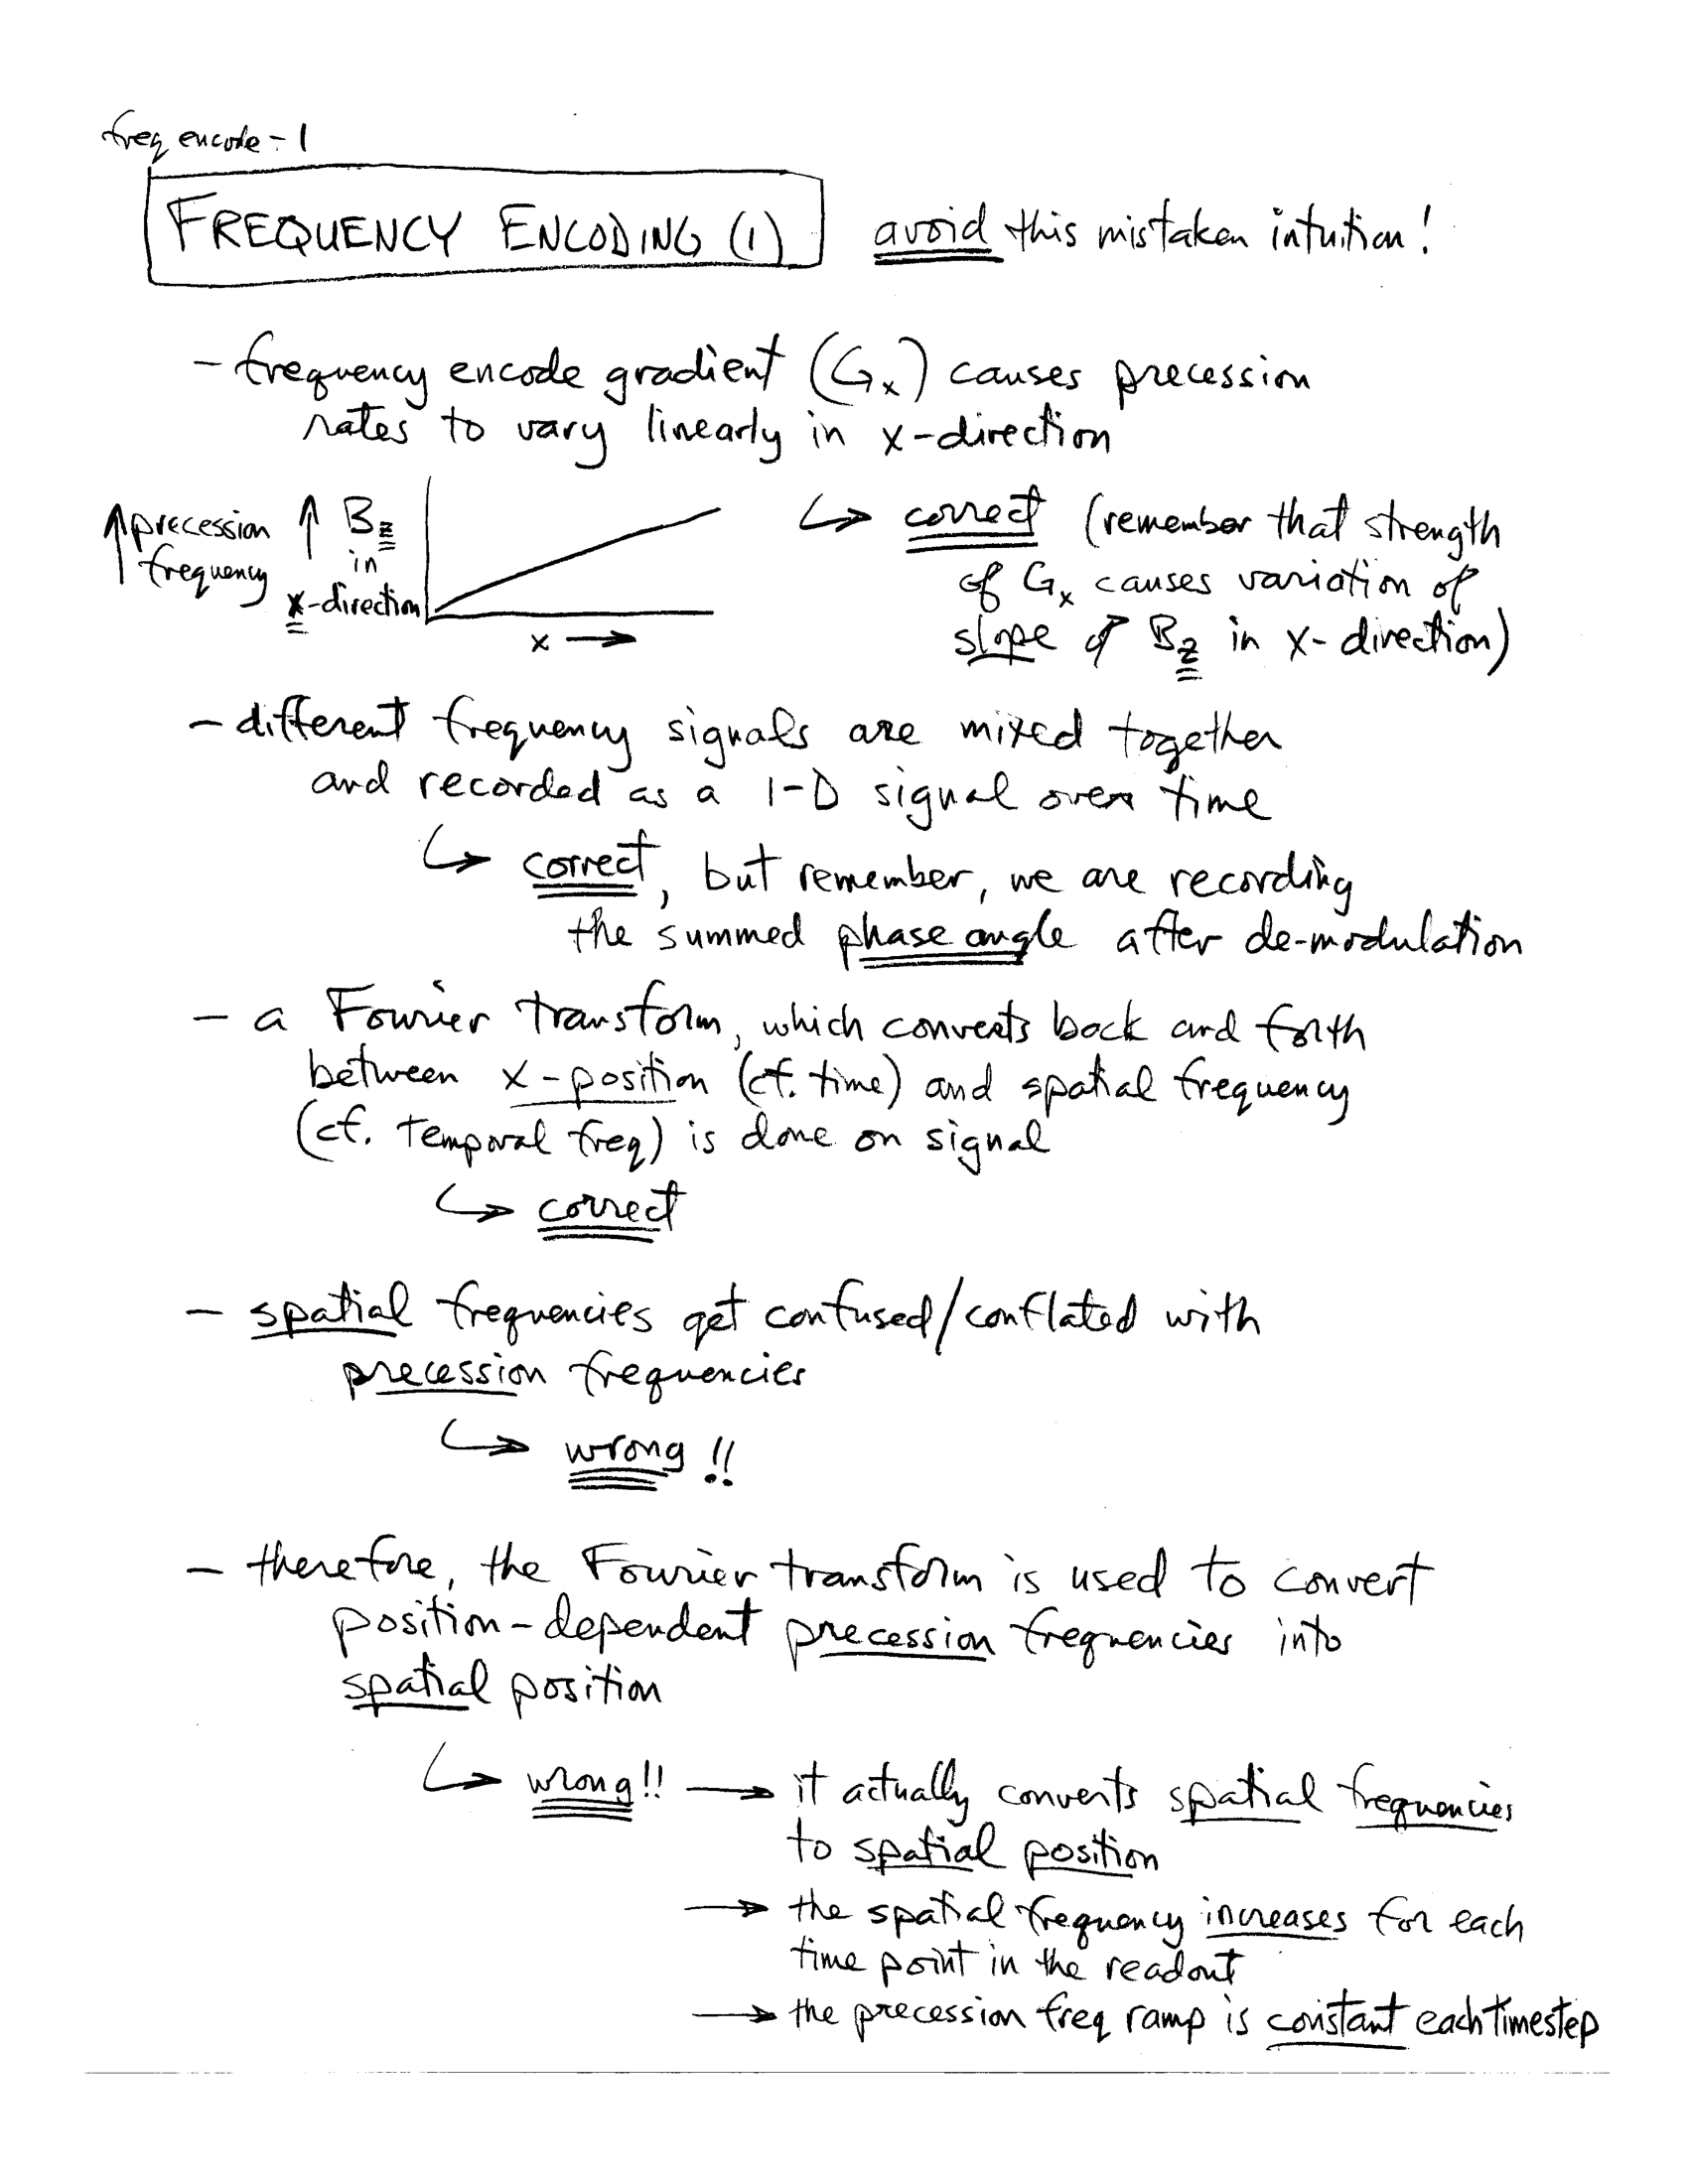 freq encode - 1
FREQUENCY ENCODING (1) avoid this mistaken intuition!
- frequency encode gradient (Gx) causes precession
rates to vary linearly in x-direction
↑ precession frequency
↑ Bz in x-direction
x →
↳ correct (remember that strength
of Gx causes variation of
slope of Bz in x-direction)
- different frequency signals are mixed together
and recorded as a 1-D signal over time
↳ correct, but remember, we are recording
the summed phase angle after de-modulation
- a Fourier transform, which converts back and forth
between x-position (cf. time) and spatial frequency
(cf. temporal freq) is done on signal
↳ correct
- spatial frequencies get confused/conflated with
precession frequencies
↳ wrong!!
- therefore, the Fourier transform is used to convert
position-dependent precession frequencies into
spatial position
↳ wrong!! → it actually converts spatial frequencies
to spatial position
→ the spatial frequency increases for each
time point in the readout
→ the precession freq ramp is constant each timestep